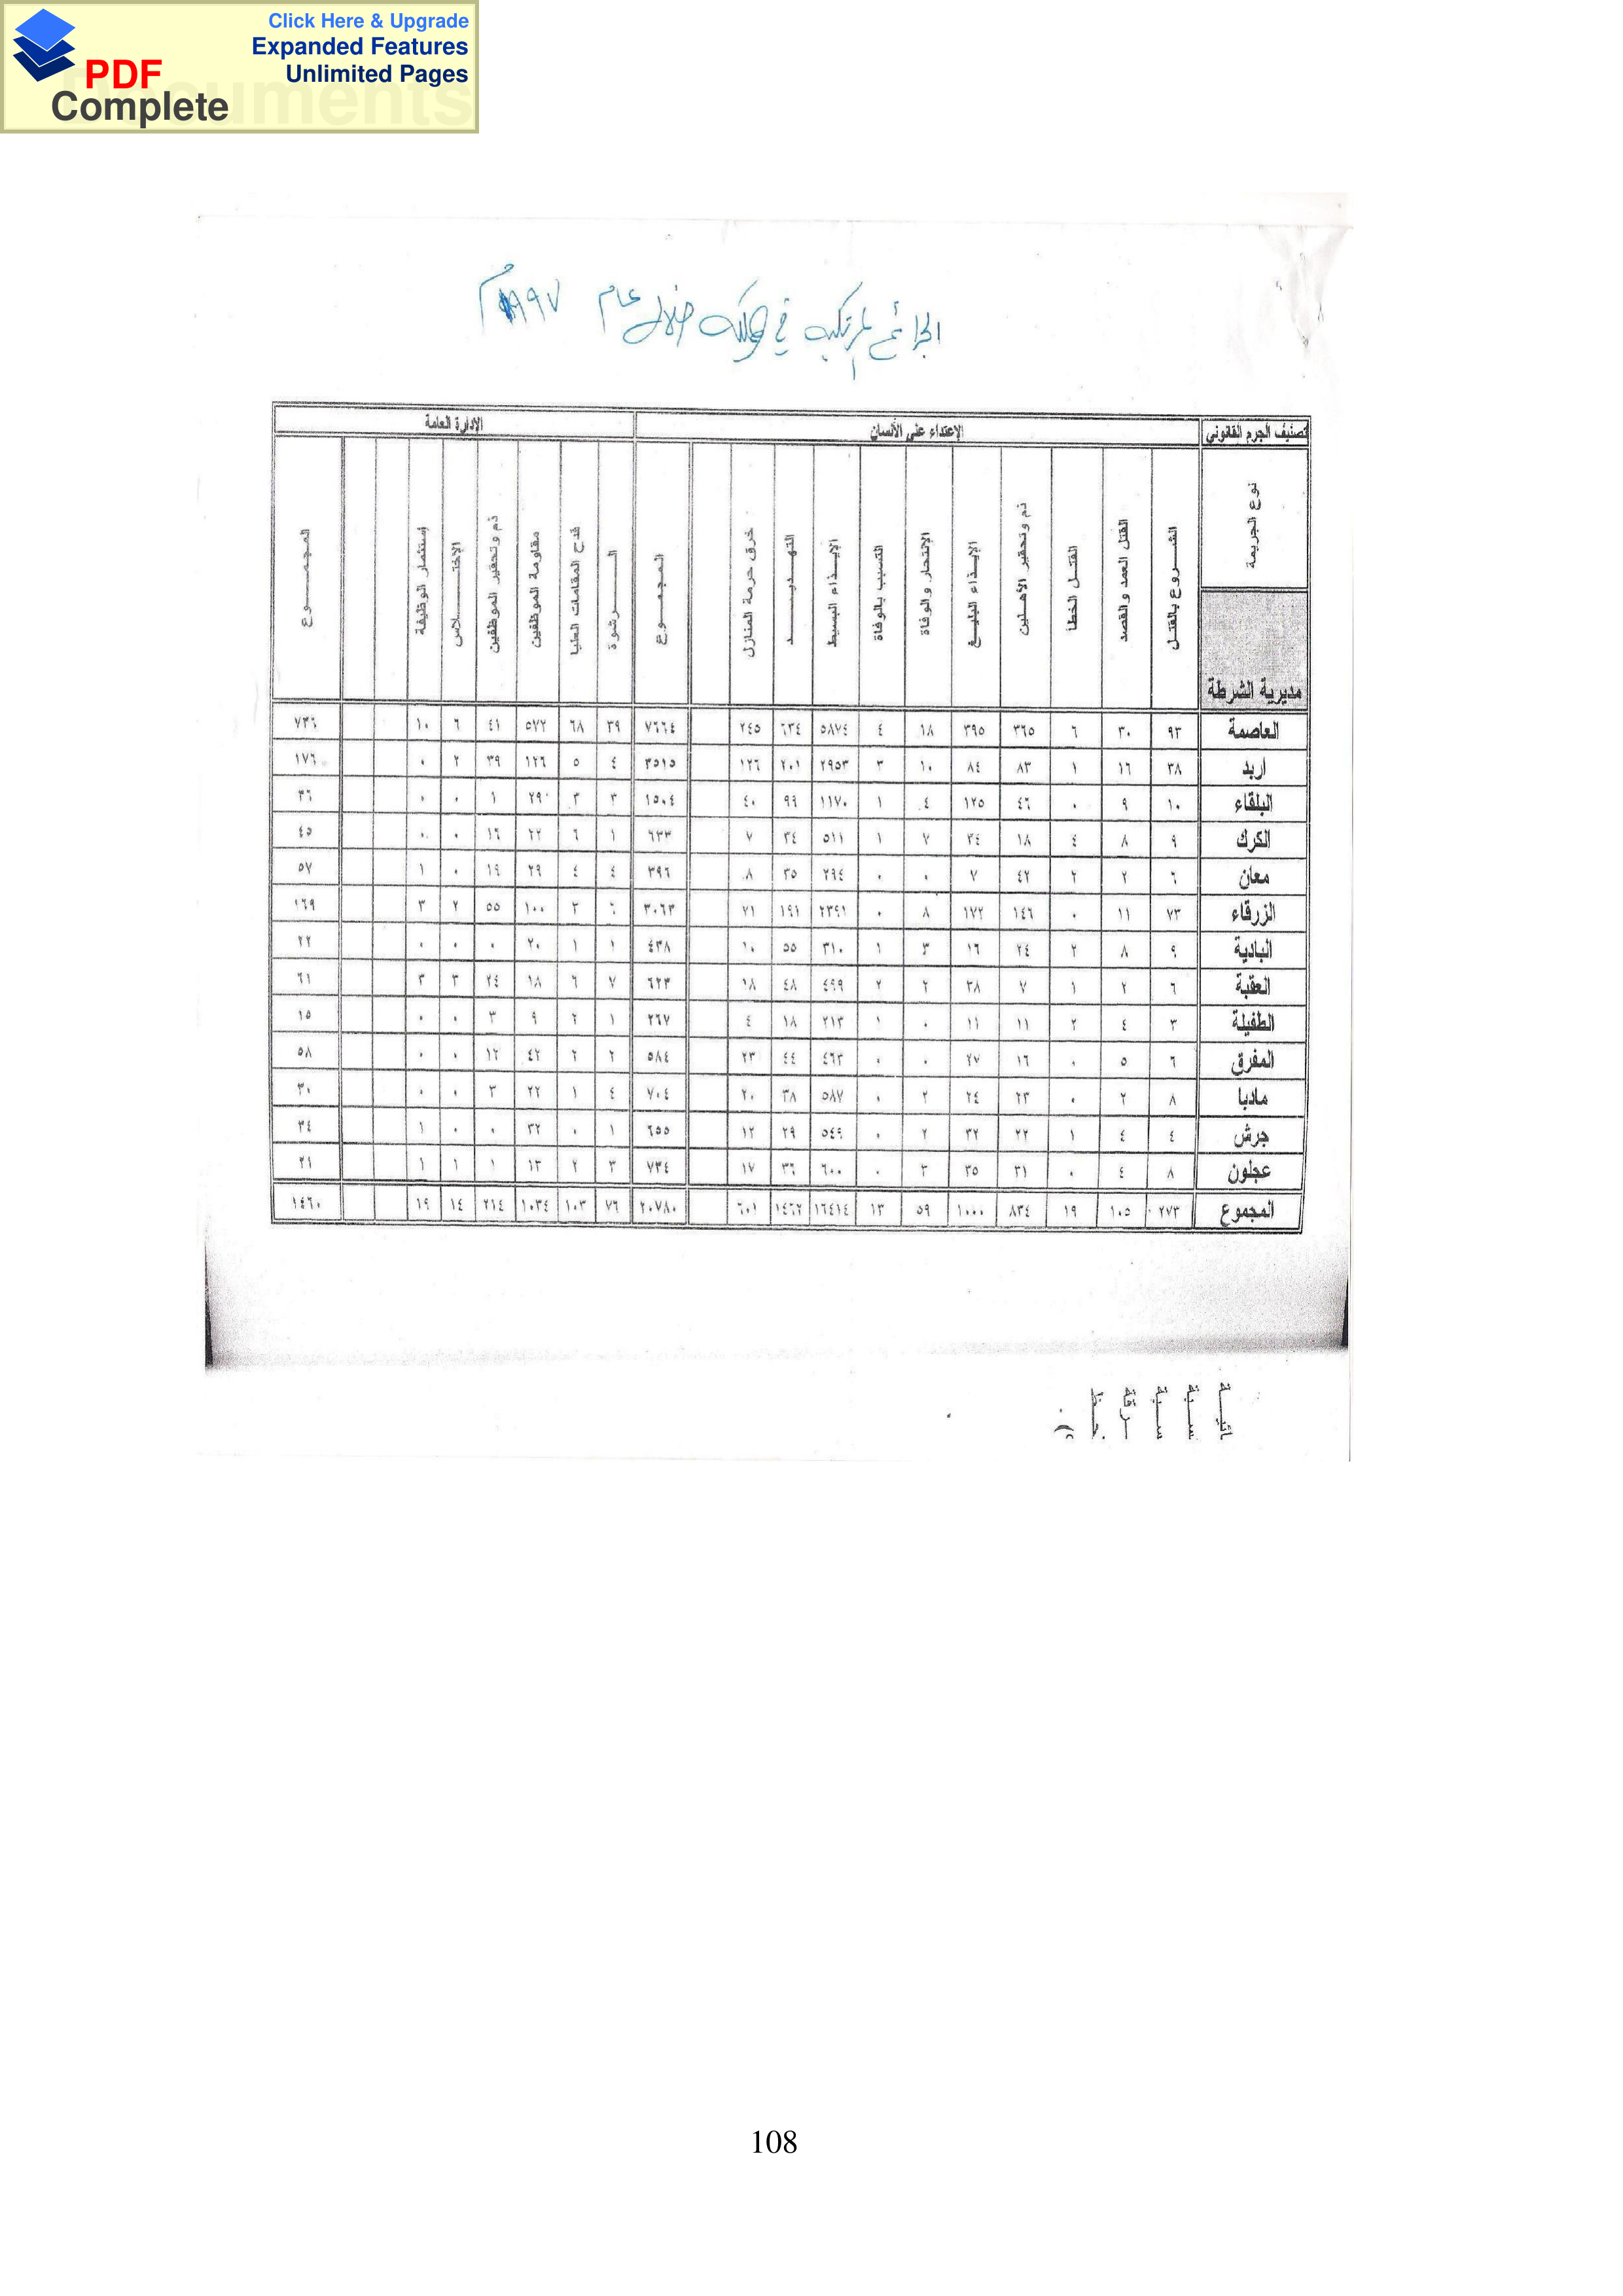 Click Here & Upgrade
Expanded Features
Unlimited Pages
PDF
Complete
Documents
الجرائم المرتكبه في المملكه خلال عام ١٩٩٧م
تصنيف الجرم القانوني الإعتداء على الأنسان الإدارة العامة
نوع الجريمة الشروع بالقتل القتل العمد والقصد القتل الخطأ ذم وتحقير الأهلين الإيذاء البليغ الإنتحار والوفاة التسبب بالوفاة الإيذاء البسيط التهديد خرق حرمة المنازل المجموع الرشوة قدح المقامات العليا مقاومة الموظفين ذم وتحقير الموظفين الإختلاس إستثمار الوظيفة المجموع
مديرية الشرطة
العاصمة ٩٣ ٣٠ ٦ ٣٦٥ ٣٩٥ ١٨ ٤ ٥٨٧٤ ٦٣٤ ٢٤٥ ٧٦٦٤ ٣٩ ٦٨ ٥٧٢ ٤١ ٦ ١٠ ٧٣٦
اربد ٣٨ ١٦ ١ ٨٣ ٨٤ ١٠ ٣ ٢٩٥٣ ٢٠١ ١٢٦ ٣٥١٥ ٤ ٥ ١٢٦ ٣٩ ٢ ٠ ١٧٦
البلقاء ١٠ ٩ ٠ ٤٦ ١٢٥ ٤ ١ ١١٧٠ ٩٩ ٤٠ ١٥٠٤ ٣ ٣ ٢٩ ١ ٠ ٠ ٣٦
الكرك ٩ ٨ ٤ ١٨ ٣٤ ٧ ١ ٥١١ ٣٤ ٧ ٦٣٣ ١ ٦ ٢٢ ١٦ ٠ ٠ ٤٥
معان ٦ ٢ ٢ ٤٢ ٧ ٠ ٠ ٢٩٤ ٣٥ ٨ ٣٩٦ ٤ ٤ ٢٩ ١٩ ٠ ١ ٥٧
الزرقاء ٧٣ ١١ ٠ ١٤٦ ١٧٢ ٨ ٠ ٢٣٩١ ١٩١ ٧١ ٣٠٦٣ ٦ ٣ ١٠٠ ٥٥ ٢ ٣ ١٦٩
البادية ٩ ٨ ٢ ٢٤ ١٦ ٣ ١ ٣١٠ ٥٥ ١٠ ٤٣٨ ١ ١ ٢٠ ٠ ٠ ٠ ٢٢
العقبة ٦ ٢ ١ ٧ ٣٨ ٢ ٢ ٤٩٩ ٤٨ ١٨ ٦٢٣ ٧ ٦ ١٨ ٢٤ ٣ ٣ ٦١
الطفيلة ٣ ٤ ٢ ١١ ١١ ٠ ١ ٢١٣ ١٨ ٤ ٢٦٧ ١ ٢ ٩ ٣ ٠ ٠ ١٥
المفرق ٦ ٥ ٠ ١٦ ٢٧ ٠ ٠ ٤٦٣ ٤٤ ٢٣ ٥٨٤ ٢ ٢ ٤٢ ١٢ ٠ ٠ ٥٨
مادبا ٨ ٢ ٠ ٢٣ ٢٤ ٢ ٠ ٥٨٧ ٣٨ ٢٠ ٧٠٤ ٤ ١ ٢٢ ٣ ٠ ٠ ٣٠
جرش ٤ ٤ ١ ٢٢ ٣٢ ٢ ٠ ٥٤٩ ٢٩ ١٢ ٦٥٥ ١ ٠ ٣٢ ٠ ٠ ١ ٣٤
عجلون ٨ ٤ ٠ ٣١ ٣٥ ٣ ٠ ٦٠٠ ٣٦ ١٧ ٧٣٤ ٣ ٢ ١٣ ١ ١ ١ ٢١
المجموع ٢٧٣ ١٠٥ ١٩ ٨٣٤ ١٠٠٠ ٥٩ ١٣ ١٦٤١٤ ١٤٦٢ ٦٠١ ٢٠٧٨٠ ٧٦ ١٠٣ ١٠٣٤ ٢١٤ ١٤ ١٩ ١٤٦٠
108